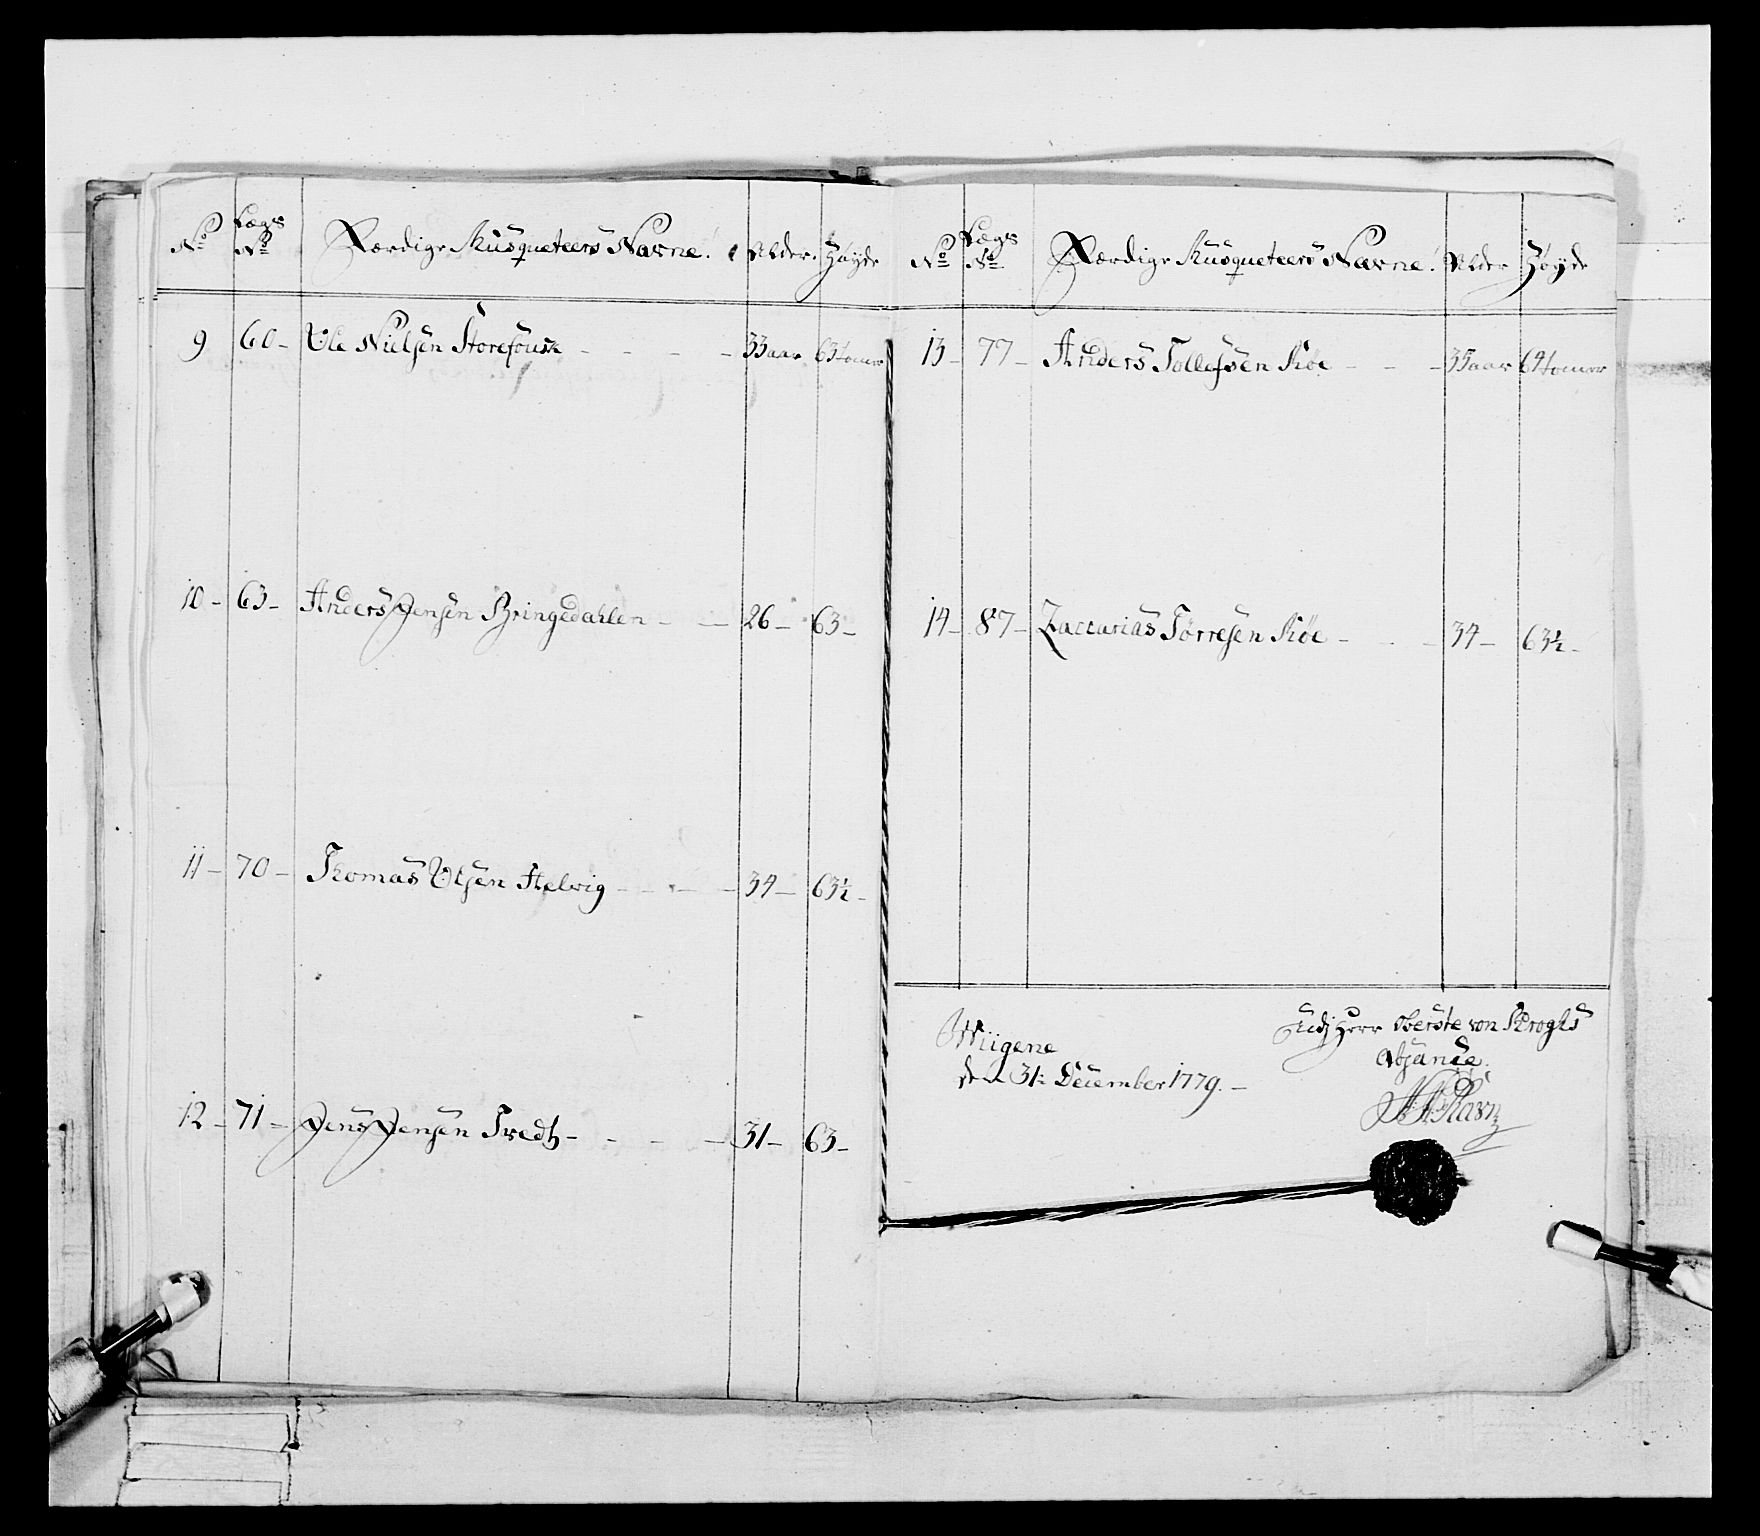 No Lægs No Færdige Musqueteers Navne! Alder. Høyde
9 60 - Ole Nielsen Storefousk - - - - 33 aar 63 tomer
10 - 63 - Anders Jensen Bringedahlen - - - 26 - 63 -
11 - 70 - Thomas Olsen Helvig - - - - 34 - 63½ -
12 - 71 - Jens Jensen Tredt - - - - 31 - 63 -
No Lægs No Færdige Musqueteers Navne! Alder Høyde
13 - 77 - Anders Tollefsen Röe - - - 35 aar 64 tomer
14 - 87 - Zaccarias Törresen Röe - - - 34 - 63½ -
Wiigene
den 31te December 1779. -
Udj Herr Oberste von Kroghs
Absance.